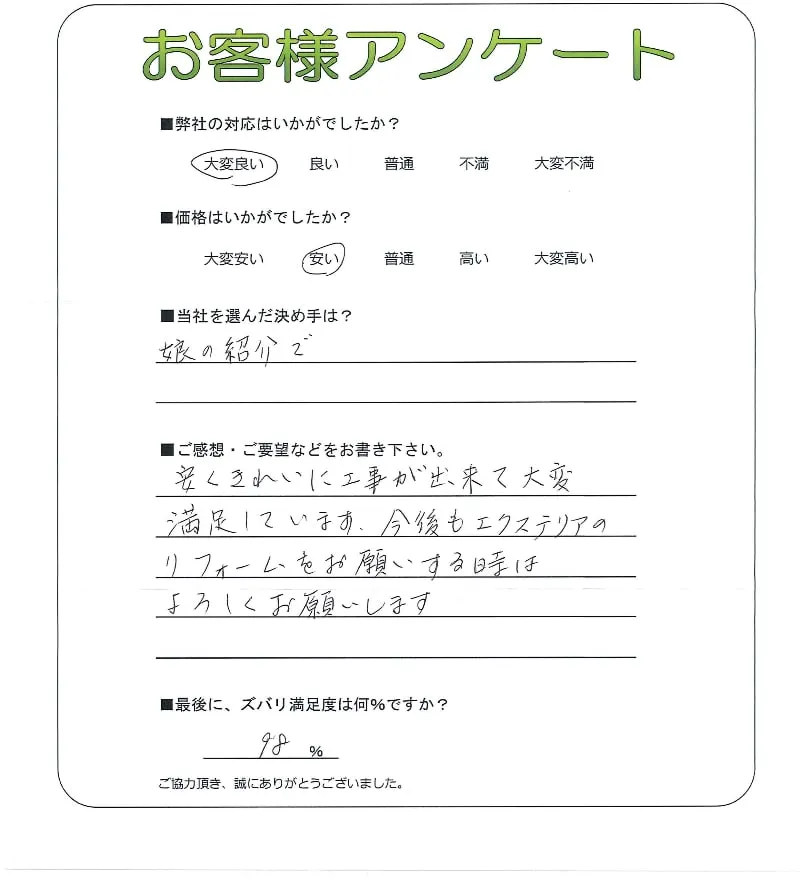 お客様アンケート
■弊社の対応はいかがでしたか？
大変良い 良い 普通 不満 大変不満
■価格はいかがでしたか？
大変安い 安い 普通 高い 大変高い
■当社を選んだ決め手は？
娘の紹介で
■ご感想・ご要望などをお書き下さい。
安くきれいに工事が出来て大変
満足しています、今後もエクステリアの
リフォームをお願いする時は
よろしくお願いします
■最後に、ズバリ満足度は何%ですか？
98 %
ご協力頂き、誠にありがとうございました。